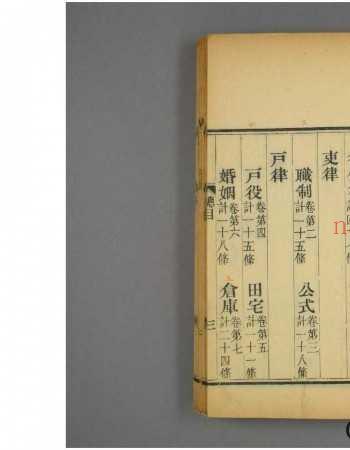 吏律
職制卷第二計一十五條
公式卷第三計一十八條
戸律
戸役卷第四計一十五條
田宅卷第五計一十一條
婚姻卷第六計一十八條
倉庫卷第七計二十四條
總目
三